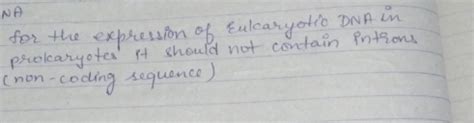 NA
for the expression of Eukaryotic DNA in
prokaryotes it should not contain introns
(non-coding sequence)